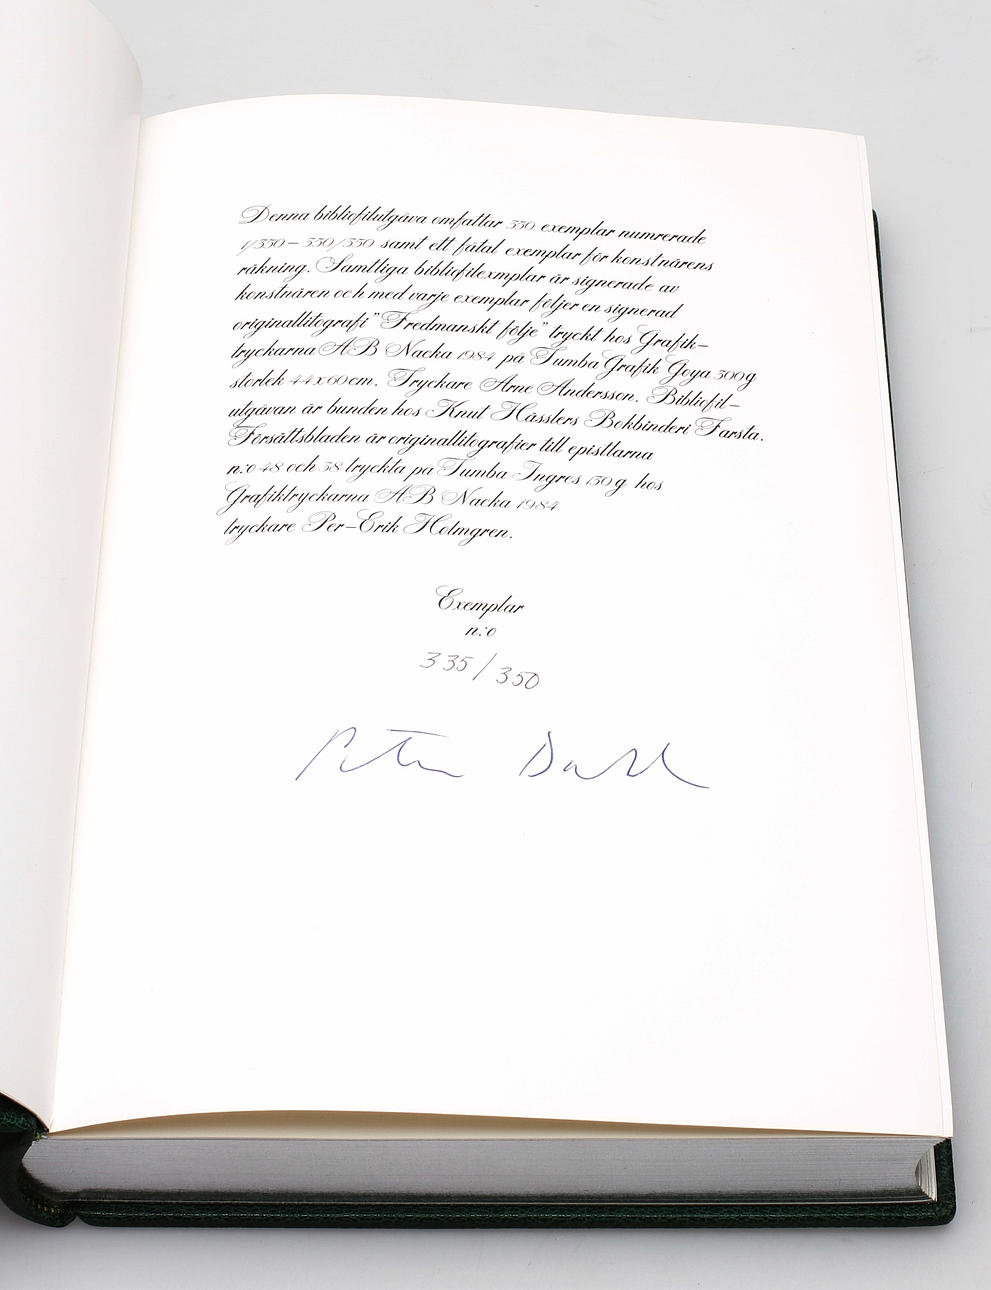 Denna bibliofilutgåva omfattar 350 exemplar numrerade
1/350 – 350/350 samt ett fåtal exemplar för konstnärens
räkning. Samtliga bibliofilexmplar är signerade av
konstnären och med varje exemplar följer en signerad
originallitografi "Fredmanskt följe" tryckt hos Grafik–
tryckarna AB Nacka 1984 på Tumba Grafik Goya 300g
storlek 44x60cm. Tryckare Arne Andersson. Bibliofil–
utgåvan är bunden hos Knut Hässlers Bokbinderi Farsta.
Försättsbladen är originallitografier till epistlarna
n:o 48 och 38 tryckta på Tumba Ingres 130g hos
Grafiktryckarna AB Nacka 1984
tryckare Per–Erik Holmgren.
Exemplar
n:o
335/350
Peter Dahl